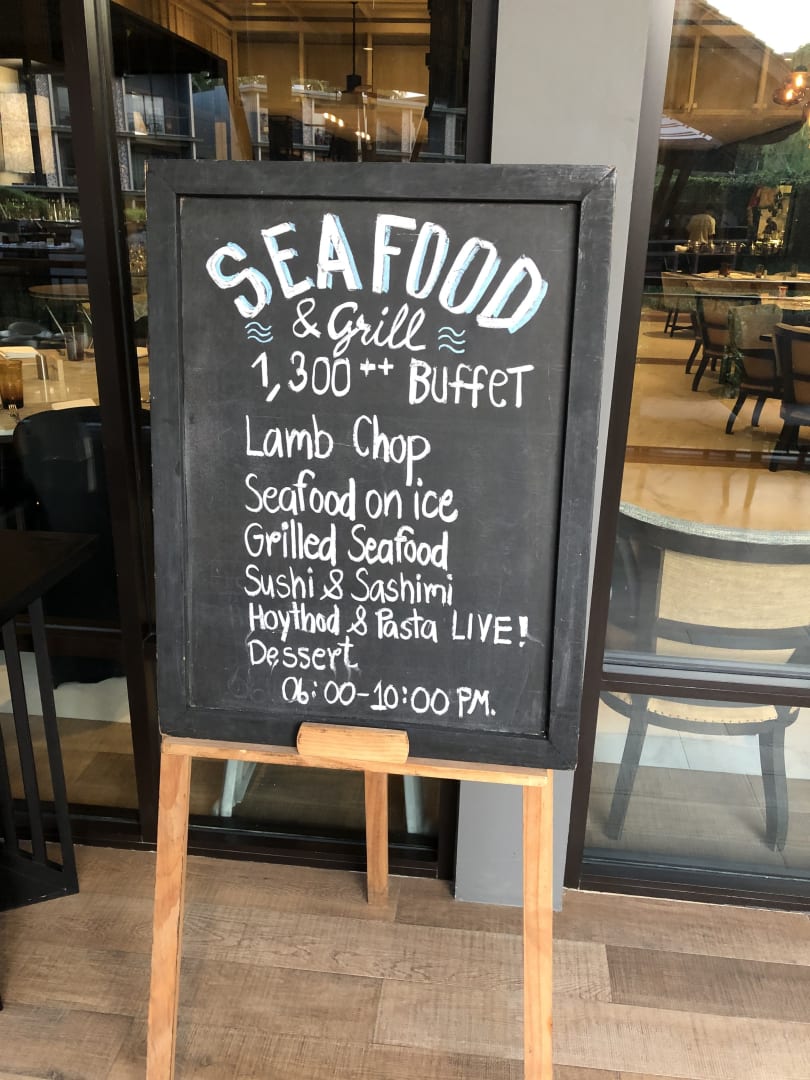 SEAFOOD
& Grill
1,300++ BuffeT
Lamb Chop
Seafood on ice
Grilled Seafood
Sushi & Sashimi
Hoythod & Pasta LIVE!
Dessert
06:00-10:00 PM.